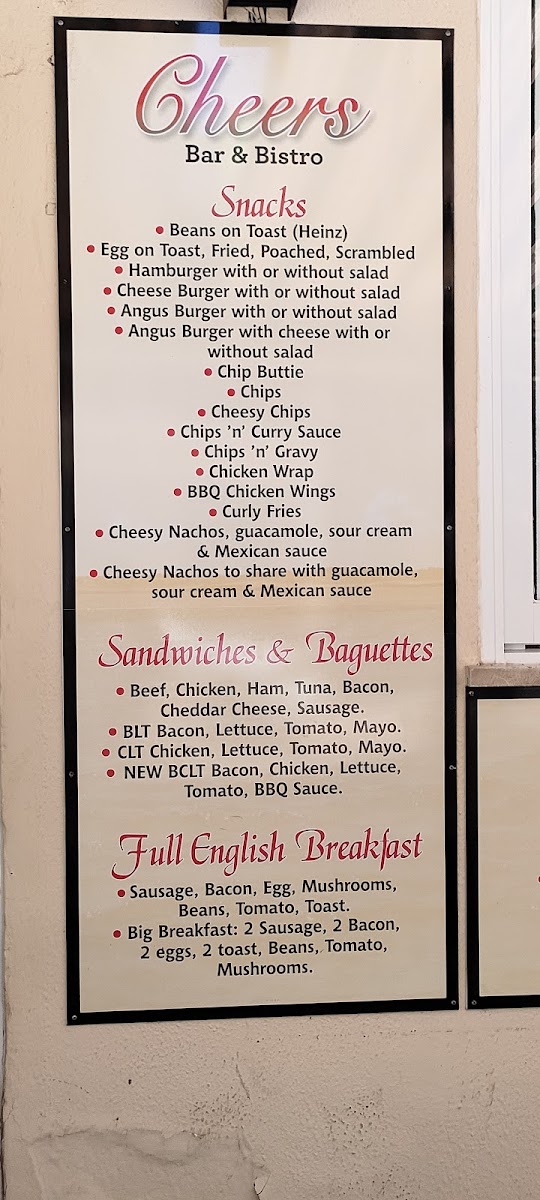 Cheers
Bar & Bistro
Snacks
• Beans on Toast (Heinz)
• Egg on Toast, Fried, Poached, Scrambled
• Hamburger with or without salad
• Cheese Burger with or without salad
• Angus Burger with or without salad
• Angus Burger with cheese with or
without salad
• Chip Buttie
• Chips
• Cheesy Chips
• Chips 'n' Curry Sauce
• Chips 'n' Gravy
• Chicken Wrap
• BBQ Chicken Wings
• Curly Fries
• Cheesy Nachos, guacamole, sour cream
& Mexican sauce
• Cheesy Nachos to share with guacamole,
sour cream & Mexican sauce
Sandwiches & Baguettes
• Beef, Chicken, Ham, Tuna, Bacon,
Cheddar Cheese, Sausage.
• BLT Bacon, Lettuce, Tomato, Mayo.
• CLT Chicken, Lettuce, Tomato, Mayo.
• NEW BCLT Bacon, Chicken, Lettuce,
Tomato, BBQ Sauce.
Full English Breakfast
• Sausage, Bacon, Egg, Mushrooms,
Beans, Tomato, Toast.
• Big Breakfast: 2 Sausage, 2 Bacon,
2 eggs, 2 toast, Beans, Tomato,
Mushrooms.